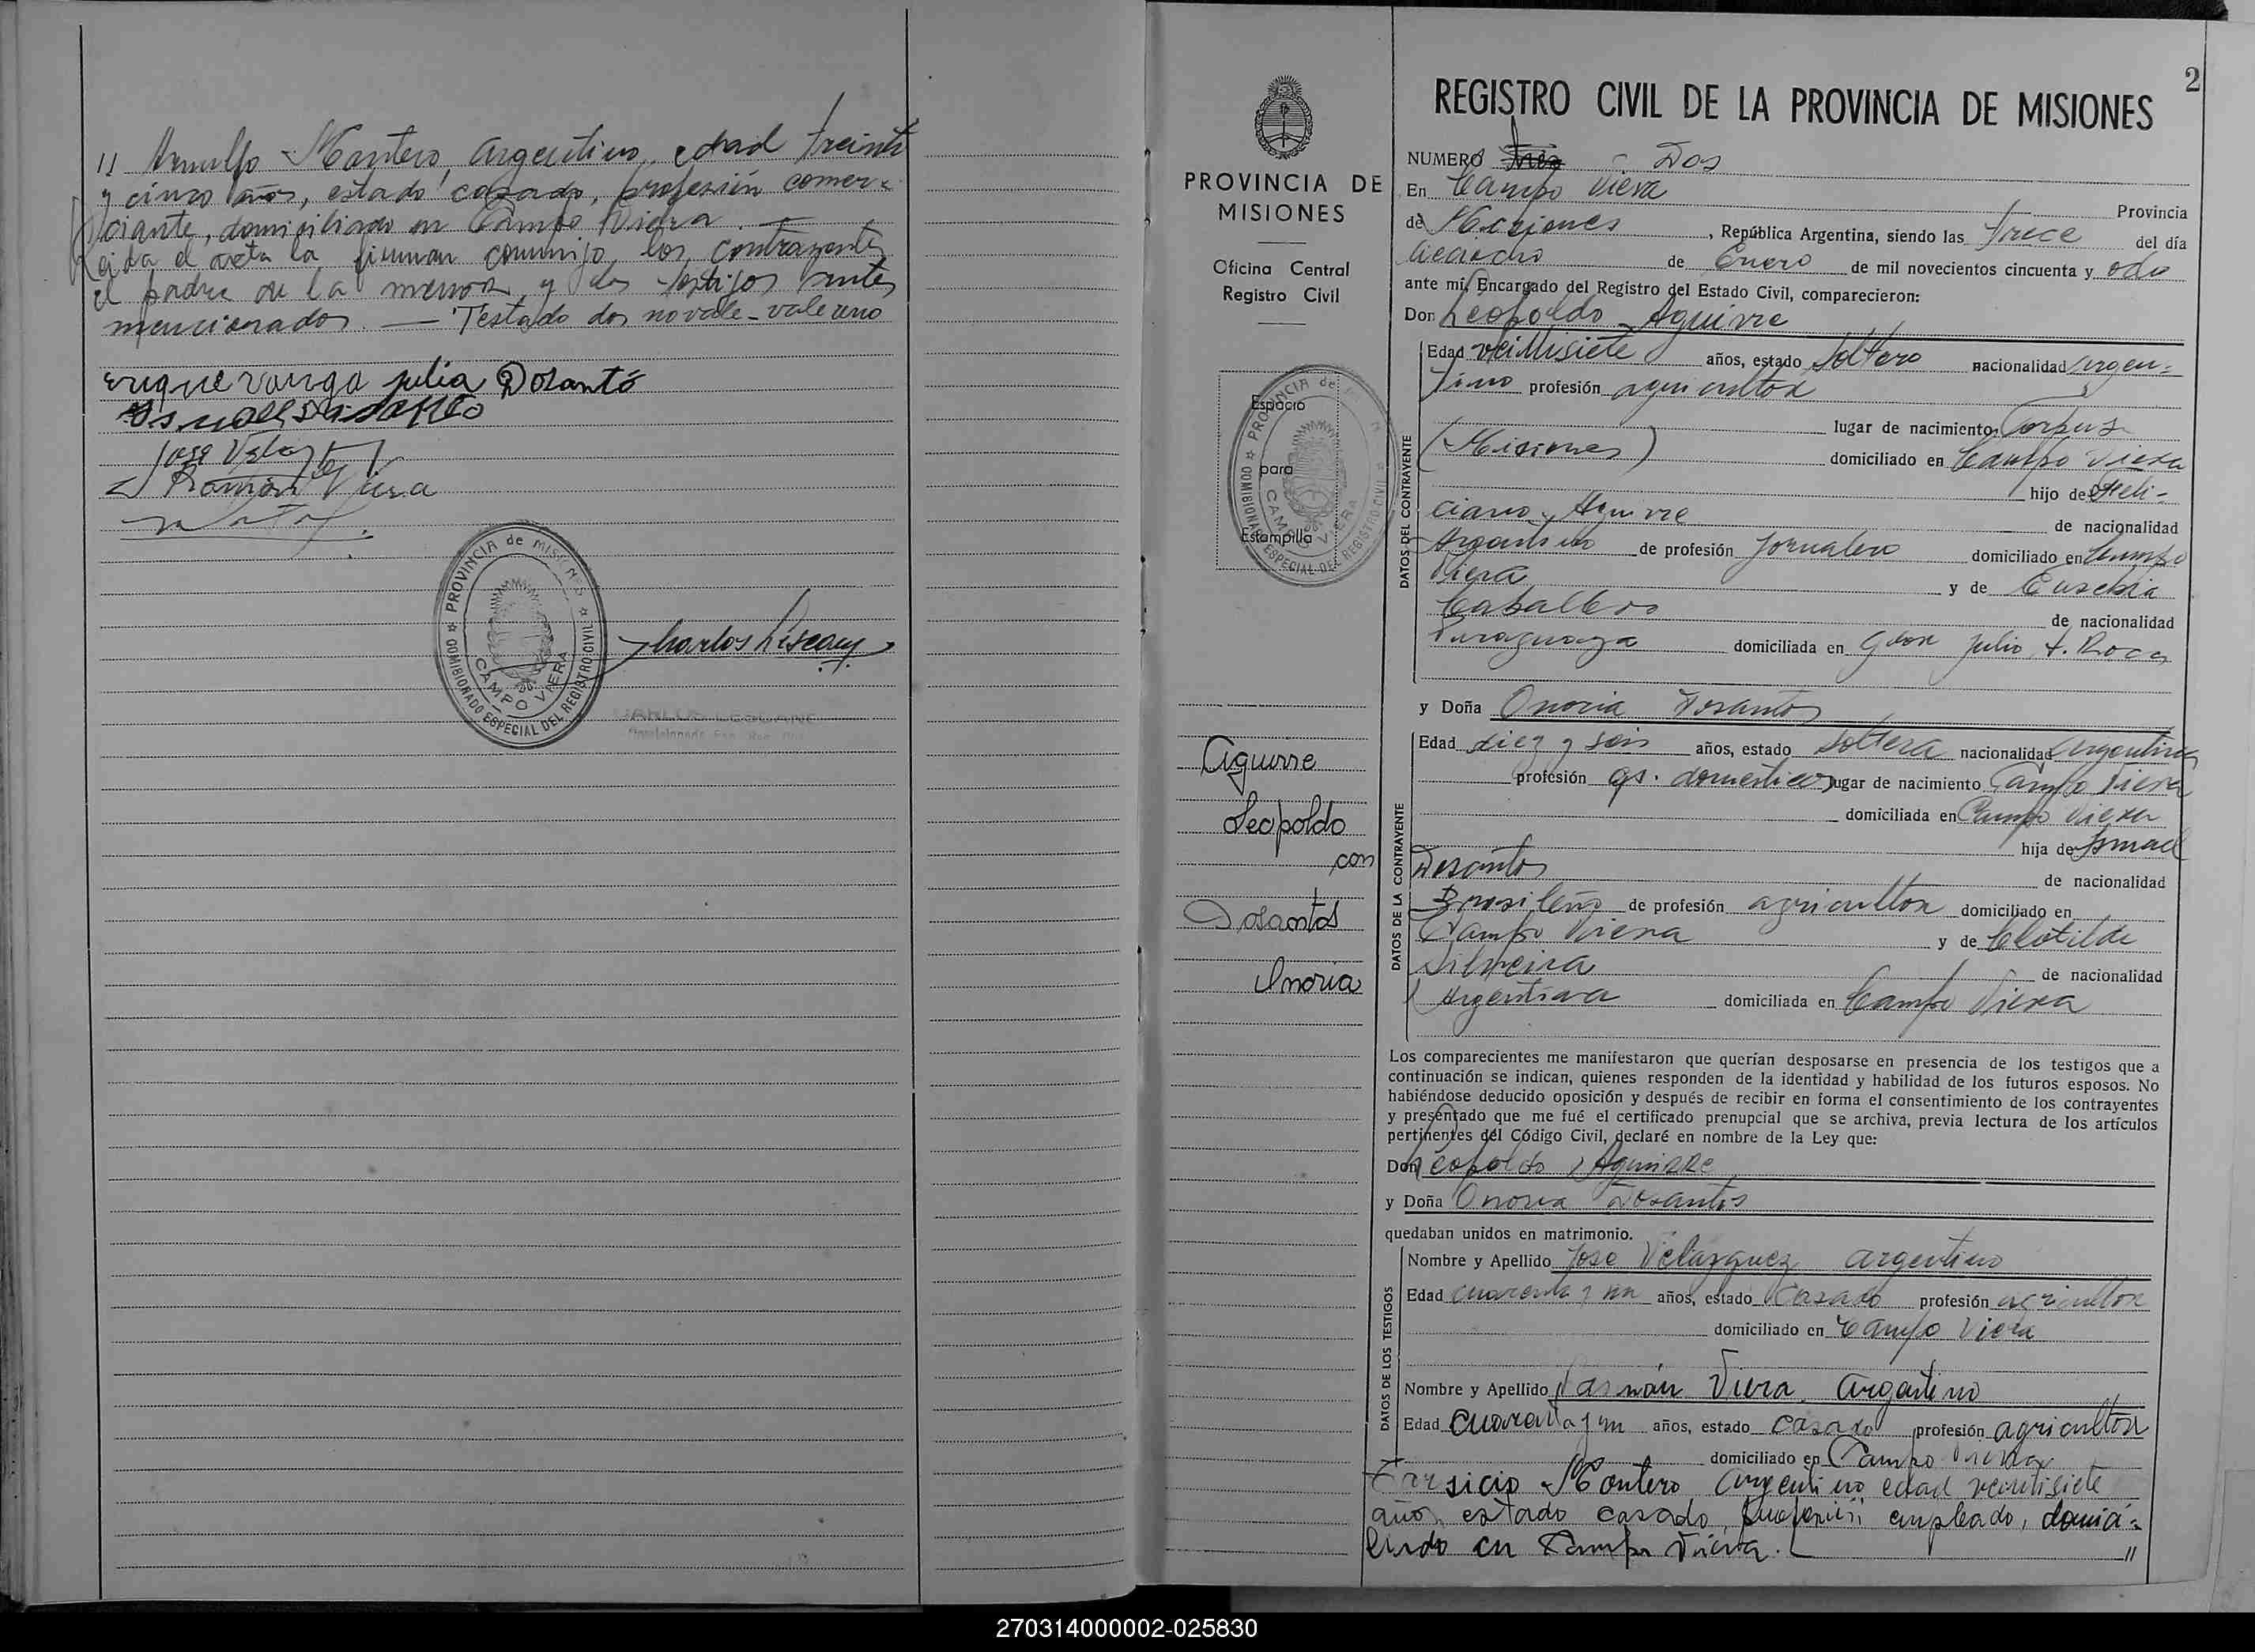 " Arnulfo Montero, Argentino, edad treinta
y cinco años, estado casado, profesión comer-
ciante, domiciliado en Campo Viera. —
Leída el acta la firman conmigo los contrayentes
el padre de la menor y los testigos antes
mencionados. — Testado dos no vale - vale uno
Enrique Varga Julia Dosantó
José Velazquez
Ramón Viera
PROVINCIA de MISIONES
COMISIONADO ESPECIAL DEL REGISTRO CIVIL
CAMPO VIERA
2
PROVINCIA DE
MISIONES
Oficina Central
Registro Civil
Espacio
para
Estampilla
PROVINCIA de
COMISIONADO ESPECIAL DEL REGISTRO CIVIL
CAMPO VIERA
Aguirre
Leopoldo
con
Dosantos
Onoria
REGISTRO CIVIL DE LA PROVINCIA DE MISIONES
NUMERO Tres - Dos
En Campo Viera
Provincia
de Misiones, República Argentina, siendo las trece del día
dieciocho de Enero de mil novecientos cincuenta y ocho
ante mí, Encargado del Registro del Estado Civil, comparecieron:
Don Leopoldo Aguirre
DATOS DEL CONTRAYENTE
Edad veintisiete años, estado soltero nacionalidad argen-
tino profesión agricultor
lugar de nacimiento Corpus
(Misiones) domiciliado en Campo Viera
hijo de Feli-
ciano Aguirre de nacionalidad
Argentino de profesión Jornalero domiciliado en Campo
Viera y de Eusebia
Caballero de nacionalidad
Paraguaya domiciliada en Gdor Julio A. Roca
y Doña Onoria Dosantos
DATOS DE LA CONTRAYENTE
Edad diez y seis años, estado soltera nacionalidad Argentina
profesión qs. domesticos lugar de nacimiento Campo Viera
domiciliada en Campo Viera
hija de Ismael
Dosantos de nacionalidad
Brasileño de profesión agricultor domiciliado en
Campo Viera y de Clotilde
Silveira de nacionalidad
Argentina domiciliada en Campo Viera
Los comparecientes me manifestaron que querían desposarse en presencia de los testigos que a
continuación se indican, quienes responden de la identidad y habilidad de los futuros esposos. No
habiéndose deducido oposición y después de recibir en forma el consentimiento de los contrayentes
y presentado que me fué el certificado prenupcial que se archiva, previa lectura de los artículos
pertinentes del Código Civil, declaré en nombre de la Ley que:
Don Leopoldo Aguirre
y Doña Onoria Dosantos
quedaban unidos en matrimonio.
DATOS DE LOS TESTIGOS
Nombre y Apellido José Velazquez argentino
Edad cuarenta y un años, estado Casado profesión agricultor
domiciliado en Campo Viera
Nombre y Apellido Ramón Viera Argentino
Edad cuarenta y un años, estado casado profesión agricultor
domiciliado en Campo Viera
Tarsicio Montero Argentino edad veintisiete
años, estado casado, profesión empleado, domici-
liado en Campo Viera. "
270314000002-025830